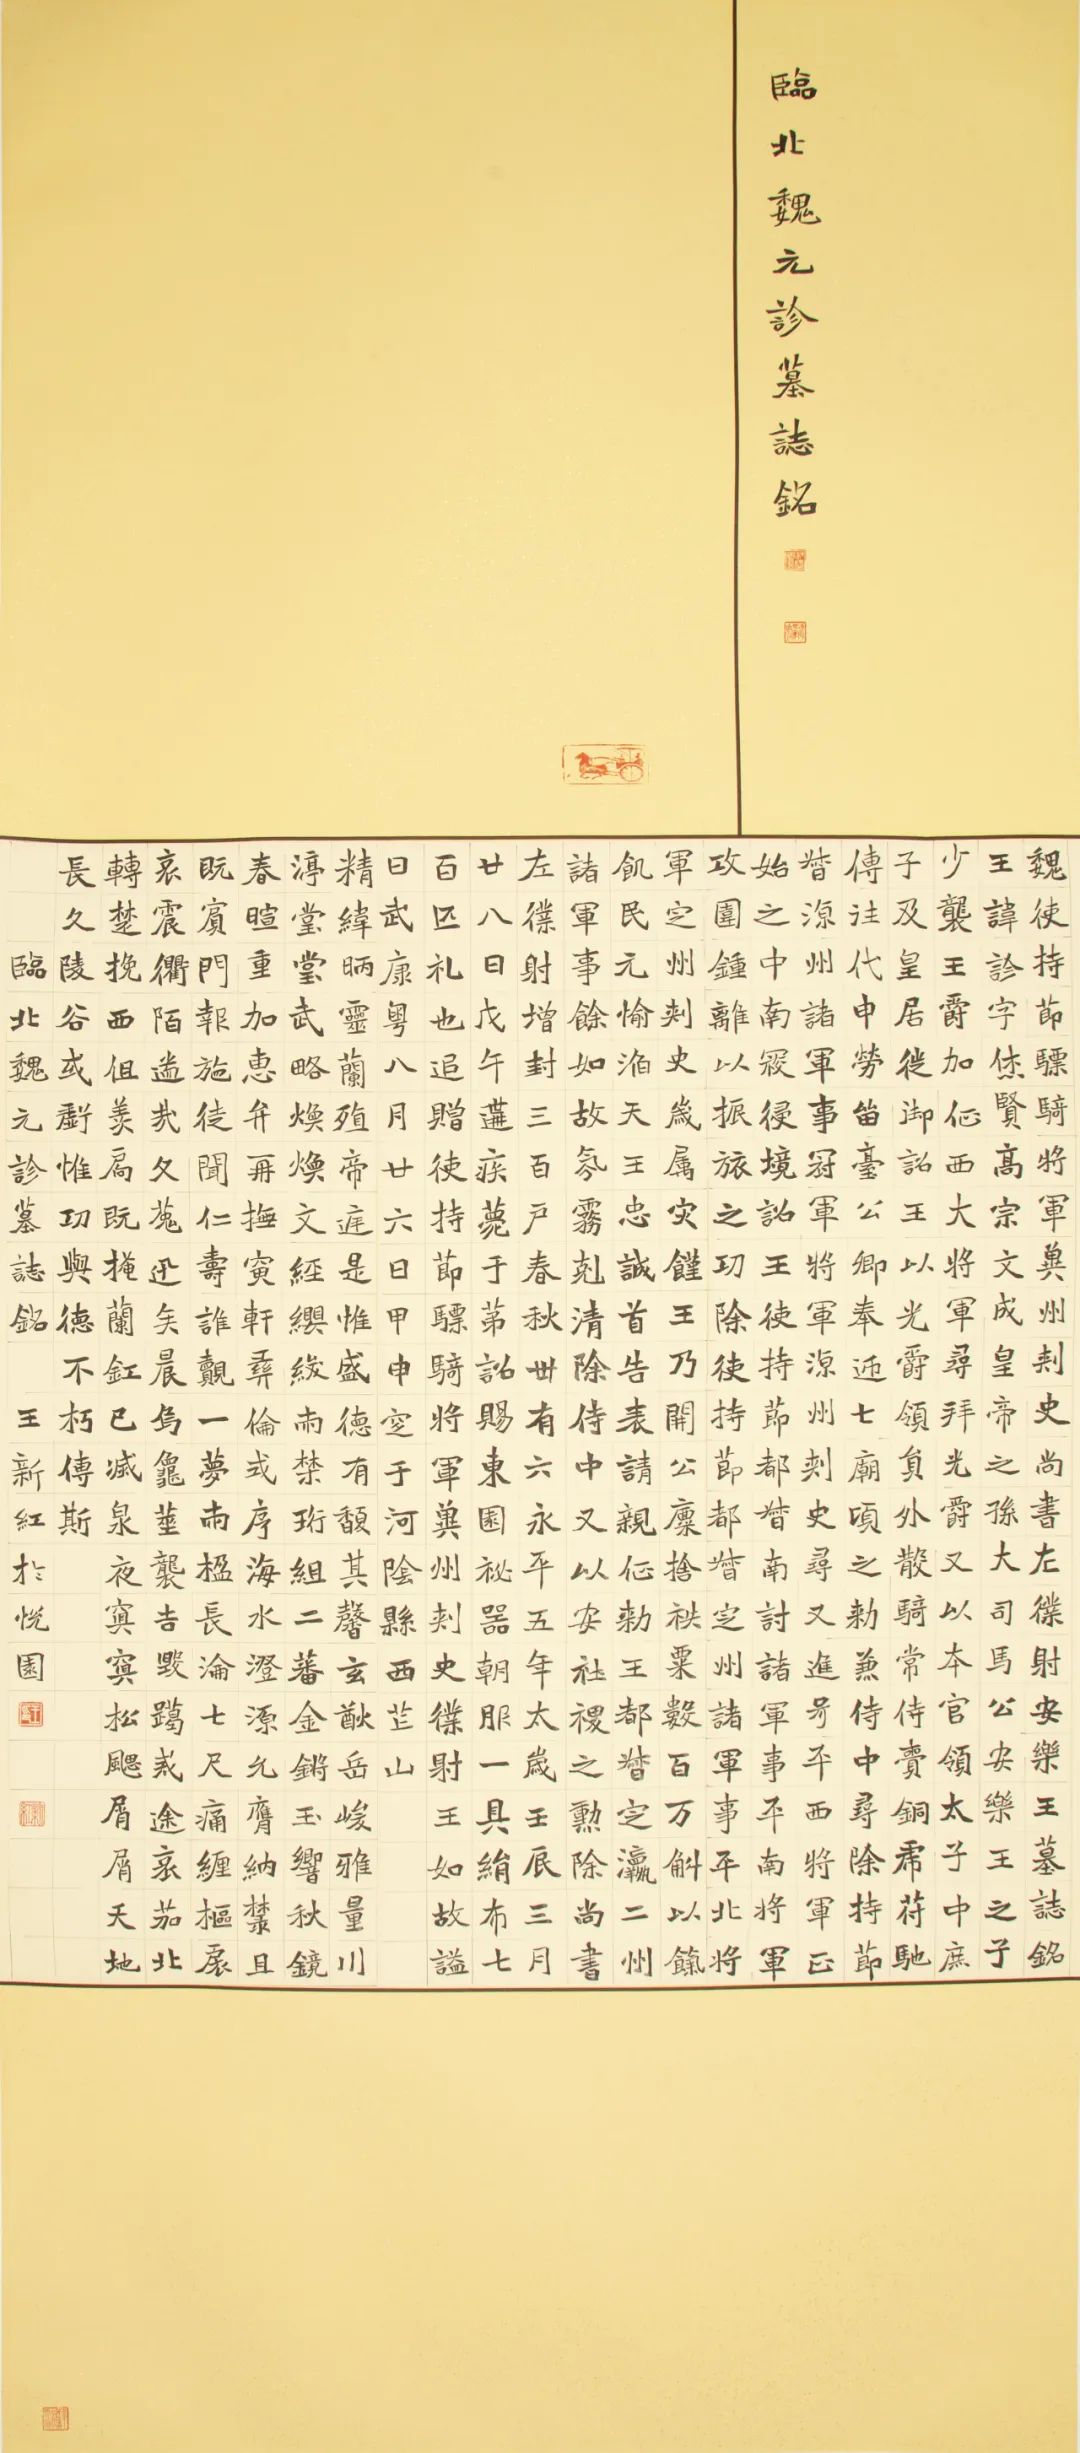 臨北魏元診墓誌銘
魏使持節驃騎將軍冀州刺史尚書左僕射安樂王墓誌銘
王諱診字休賢高宗文成皇帝之孫大司馬公安樂王之子
少襲王爵加征西大將軍尋拜光爵又以本官領太子中庶
子及皇居徙御詔王以光爵領員外散騎常侍賫銅虎符馳
傳注代申勞笛臺公卿奉迊七廟頃之勅兼侍中尋除持節
督涼州諸軍事冠軍將軍涼州刺史尋又進号平西將軍正
始之中南寇侵境詔王使持節都督南討諸軍事平南將軍
攻圍鍾離以振旅之功除使持節都督定州諸軍事平北將
軍定州刺史歲属灾饉王乃開公廩捨秩粟數百万斛以餼
飢民元愉滔天王忠誠首告表請親征勅王都督定瀛二州
諸軍事餘如故氛霧剋清除侍中又以安社稷之勳除尚書
左僕射增封三百戶春秋卅有六永平五年太歲壬辰三月
廿八日戊午遘疾薨于第詔賜東園祕器朝服一具絹布七
百匹礼也追贈使持節驃騎將軍冀州刺史僕射王如故謚
曰武康粵八月廿六日甲申窆于河陰縣西芒山
精緯昞靈蘭殖帝庭是惟盛德有馥其馨玄猷岳峻雅量川
渟堂堂武略煥煥文經纓紱兩禁珩組二蕃金鏘玉響秋鏡
春暄重加惠弁再撫寅軒彝倫或序海水澄源允膺納麓且
既賓門報施徒聞仁壽誰覿一夢兩楹長淪七尺痛纏樞扆
哀震衢陌遄哉夂菟迅矣晨烏龜筮襲吉毀躅戒途哀茄北
轉楚挽西徂羨扄既掩蘭釭已滅泉夜寞寞松颸屑屑天地
長久陵谷或虧惟功與德不朽傳斯
臨北魏元診墓誌銘 王新紅於悅園